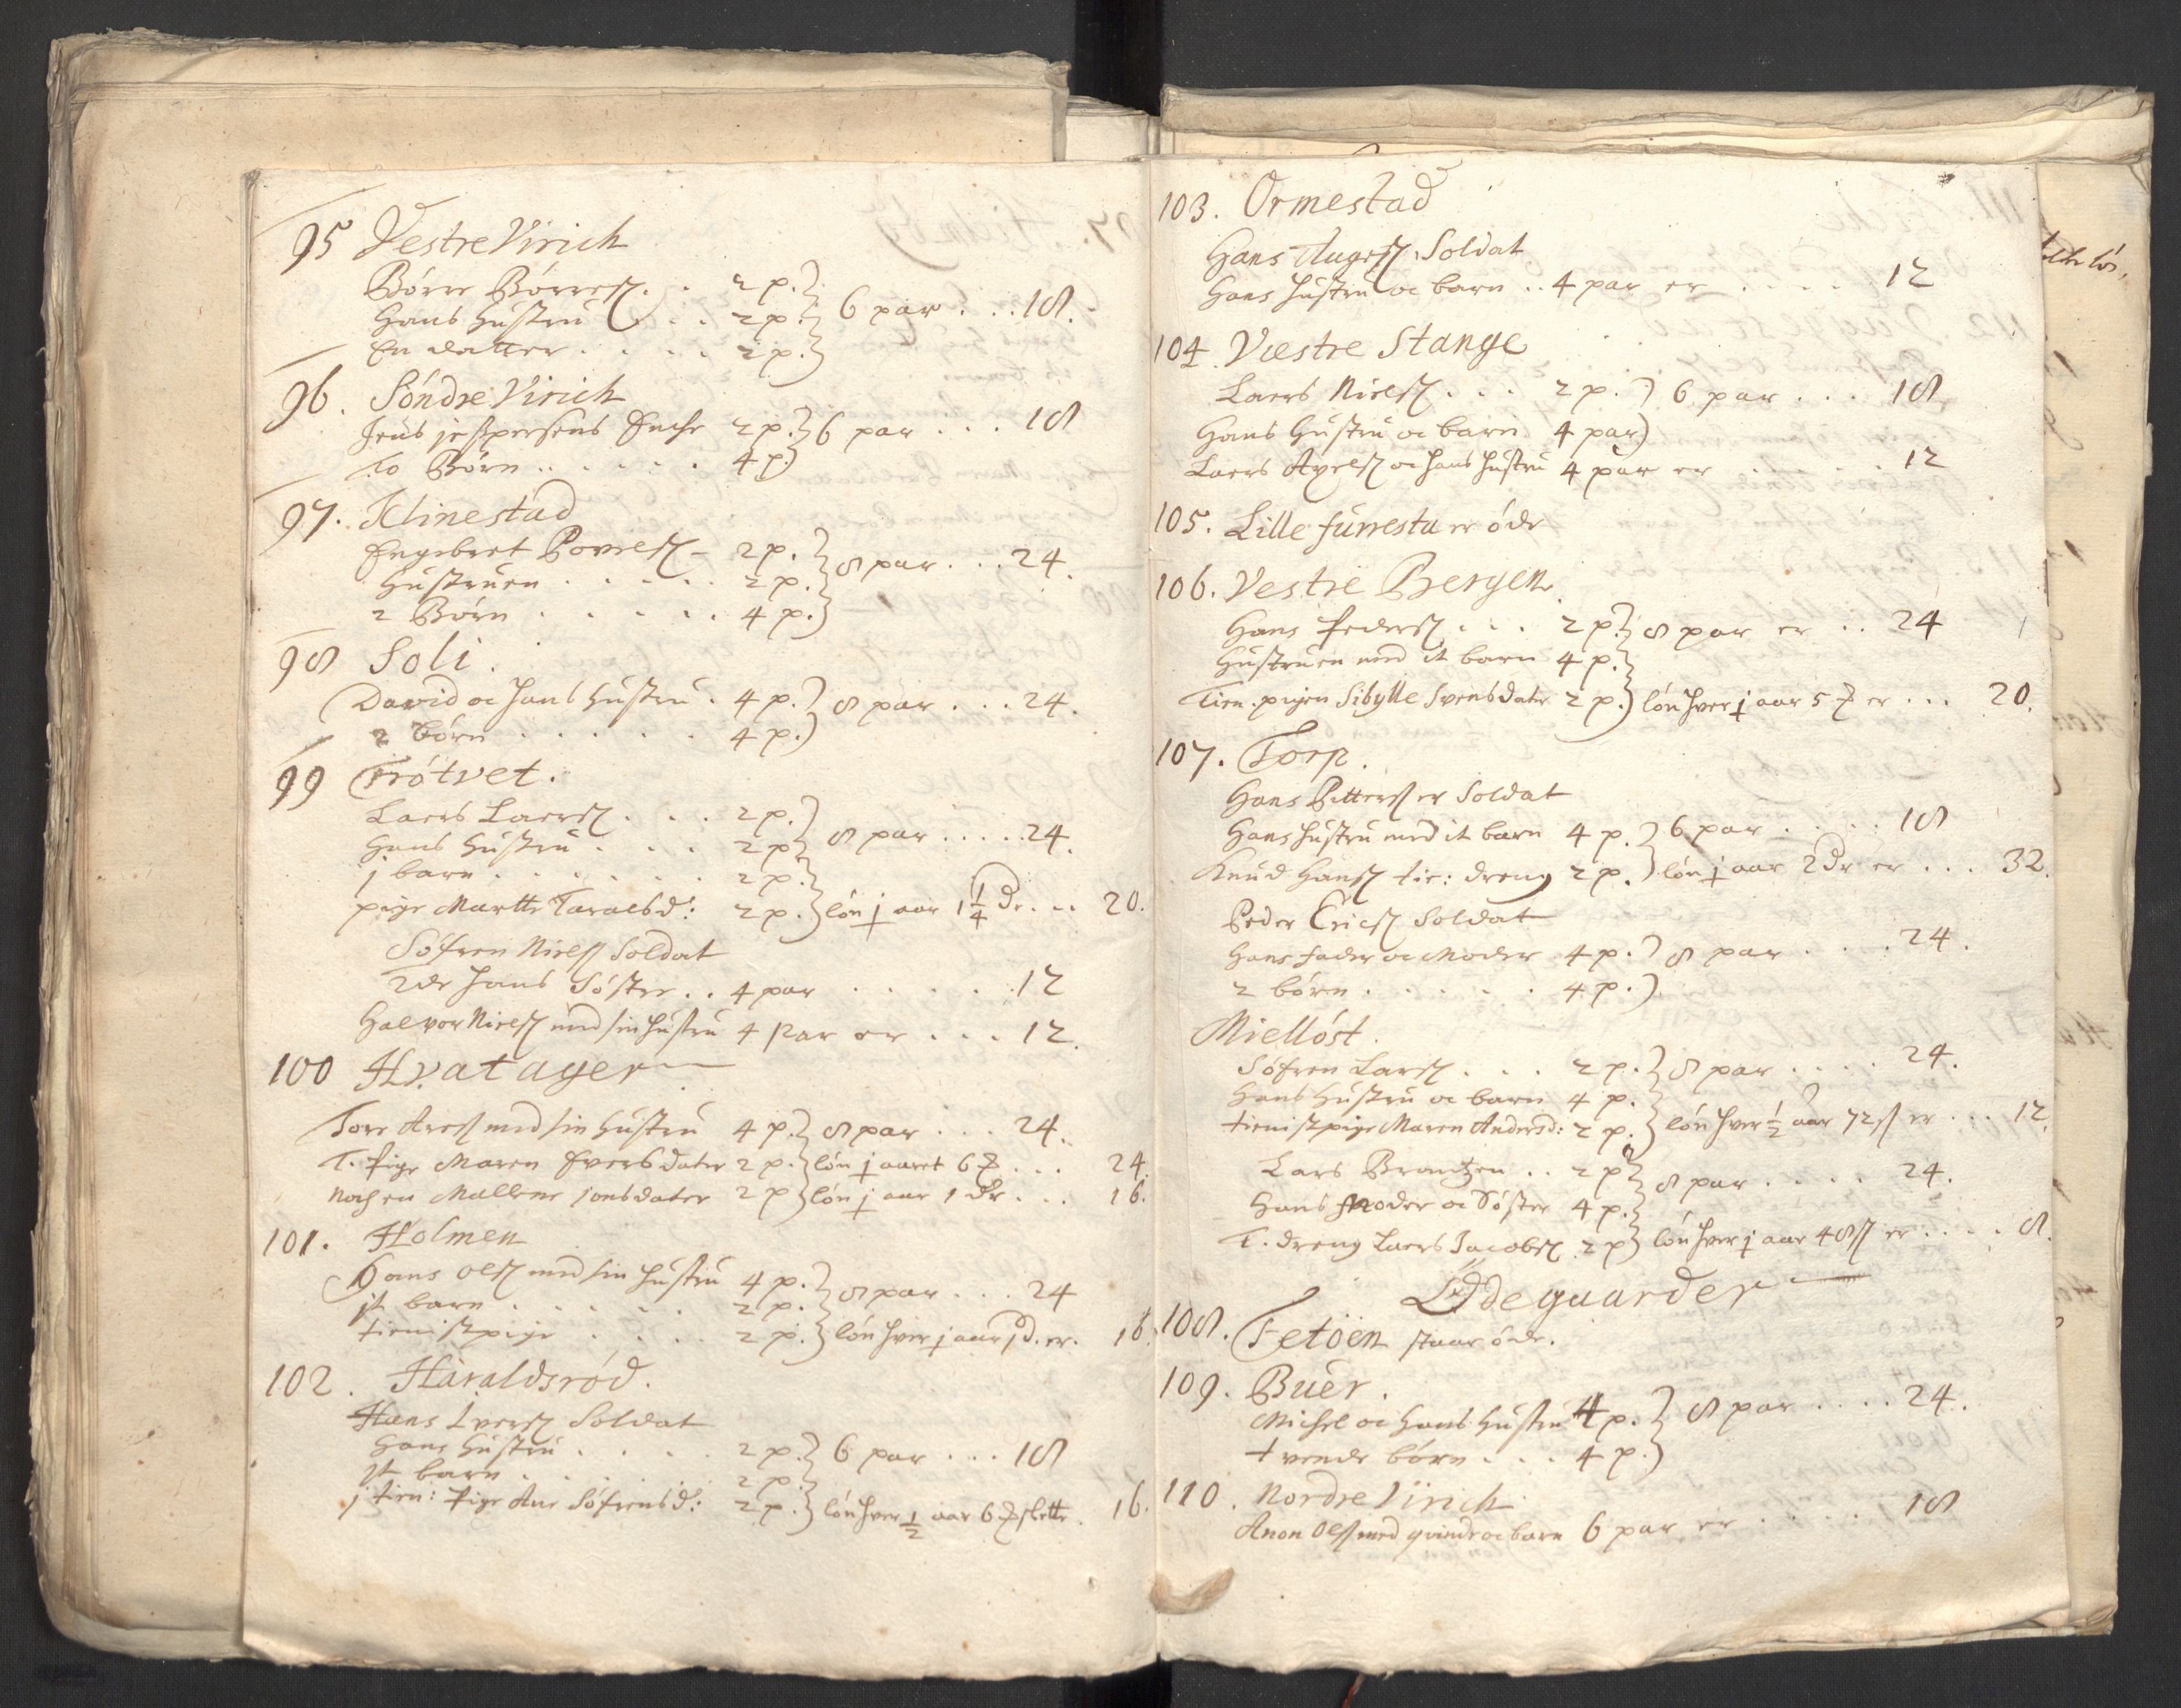 95 Vestre Virich
Börre Börresß. . 2 p.
Hans Hustru . . 2 p. } 6 par . . . 18.
En datter . . . . 2 p.
96. Söndre Virich
Jens jespersens Enche 2 p. } 6 par . . . 18
To Börn . . . . . . 4 p.
97. Klinestad
Engebret Povelsß - 2 p. } 8 par . . . 24.
Hustruen . . . . . 2 p.
2 Börn . . . . . 4 p.
98 Soli.
David oc hans Hustru . 4 p. } 8 par . . . 24.
2 börn . . . . . . 4 p.
99 Trötvet.
Laers Laersß . . . 2 p.
Hans Hustru . . . 2 p. } 8 par . . . . . 24.
j barn . . . . . . 2 p.
pige Martte Taralsd: 2 p. } lön j aar 1 1/4 Dr. . . 20.
Söfren Nielsß Soldat
hans Söster . . 4 par . . . . . . 12
Halvor Nielsß med sin hustru 4 par er . . . 12.
100 Hvatager
Tore Aresß med sin Hustru 4 p. } 8 par . . . 24.
T. Pige Maren Eversdater 2 p. } lön j aaret 6 . . . 24.
Noch en Mallene jonsdater 2 p } lön j aar 1 dr . . . 16.
101. Holmen
Hans Olsß med sin hustru 4 p. } 8 par . . . 24
jt barn . . . . . . 2 p.
tienistpige . . . . 2 p. } lön hver j aar j d. er. 16.
102. Haraldsröd.
Hans Iversß Soldat
Hans Hustru . . . . 2 p. } 6 par . . . 18
jt barn . . . . . . 2 p.
j tien: Pige Ane Söfrensd: 2 p. } lön hver 1/2 aar 6 slette . 16.
103. Ormestad
Hans Augesß Soldat
Hans hustru oc barn . . 4 par er . . . . 12
104. Væstre Stange
Laers Nielsß . . . 2 p. } 6 par . . . 18
Hans Hustru oc barn 4 par
Laers Axelsß oc hans hustru 4 par er . . . . 12
105. Lille furresta er öde
106. Vestre Bergen
Hans Pedersß . . . 2 p. } 8 par er . . 24
Hustruen med it barn 4 p.
Tien. pigen Sibylle Svensdater 2 p. } lön hver j aar 5 er . . . 20.
107. Torp.
Hans Pittersß er Soldat
Hans hustru med it barn 4 p. } 6 par . . . . 18
Knud Hansß tie: dreng 2 p. } lön j aar 2 Dr er . . . 32.
Peder Ericsß Soldat
Hans fader oc Moder 4 p. } 8 par . . . . 24.
2 börn . . . . . 4 p.
Miellöst.
Söfren Larsß . . . 2 p. } 8 par . . . . 24.
Hans Hustru oc barn 4 p.
tienistpige Maren Andersd: 2 p. } lön hver 1/2 aar 72 ß er . . . 12.
Lars Brantzen . . 2 p } 8 par . . . . 24.
Hans Moder oc Söster 4 p.
T. dreng Laers Jacobsß 2 p } lön hver j aar 48 ß er . . . . 8.
Ödeguarder
108. Fetöen staar öde.
109. Buer.
Michel oc Hans Hustru 4 p. } 8 par . . . . 24.
tvende börn . . . 4 p.
110. Nordre Virich
Anon Olsß med qvinde oc barn 6 par er . . . . 18